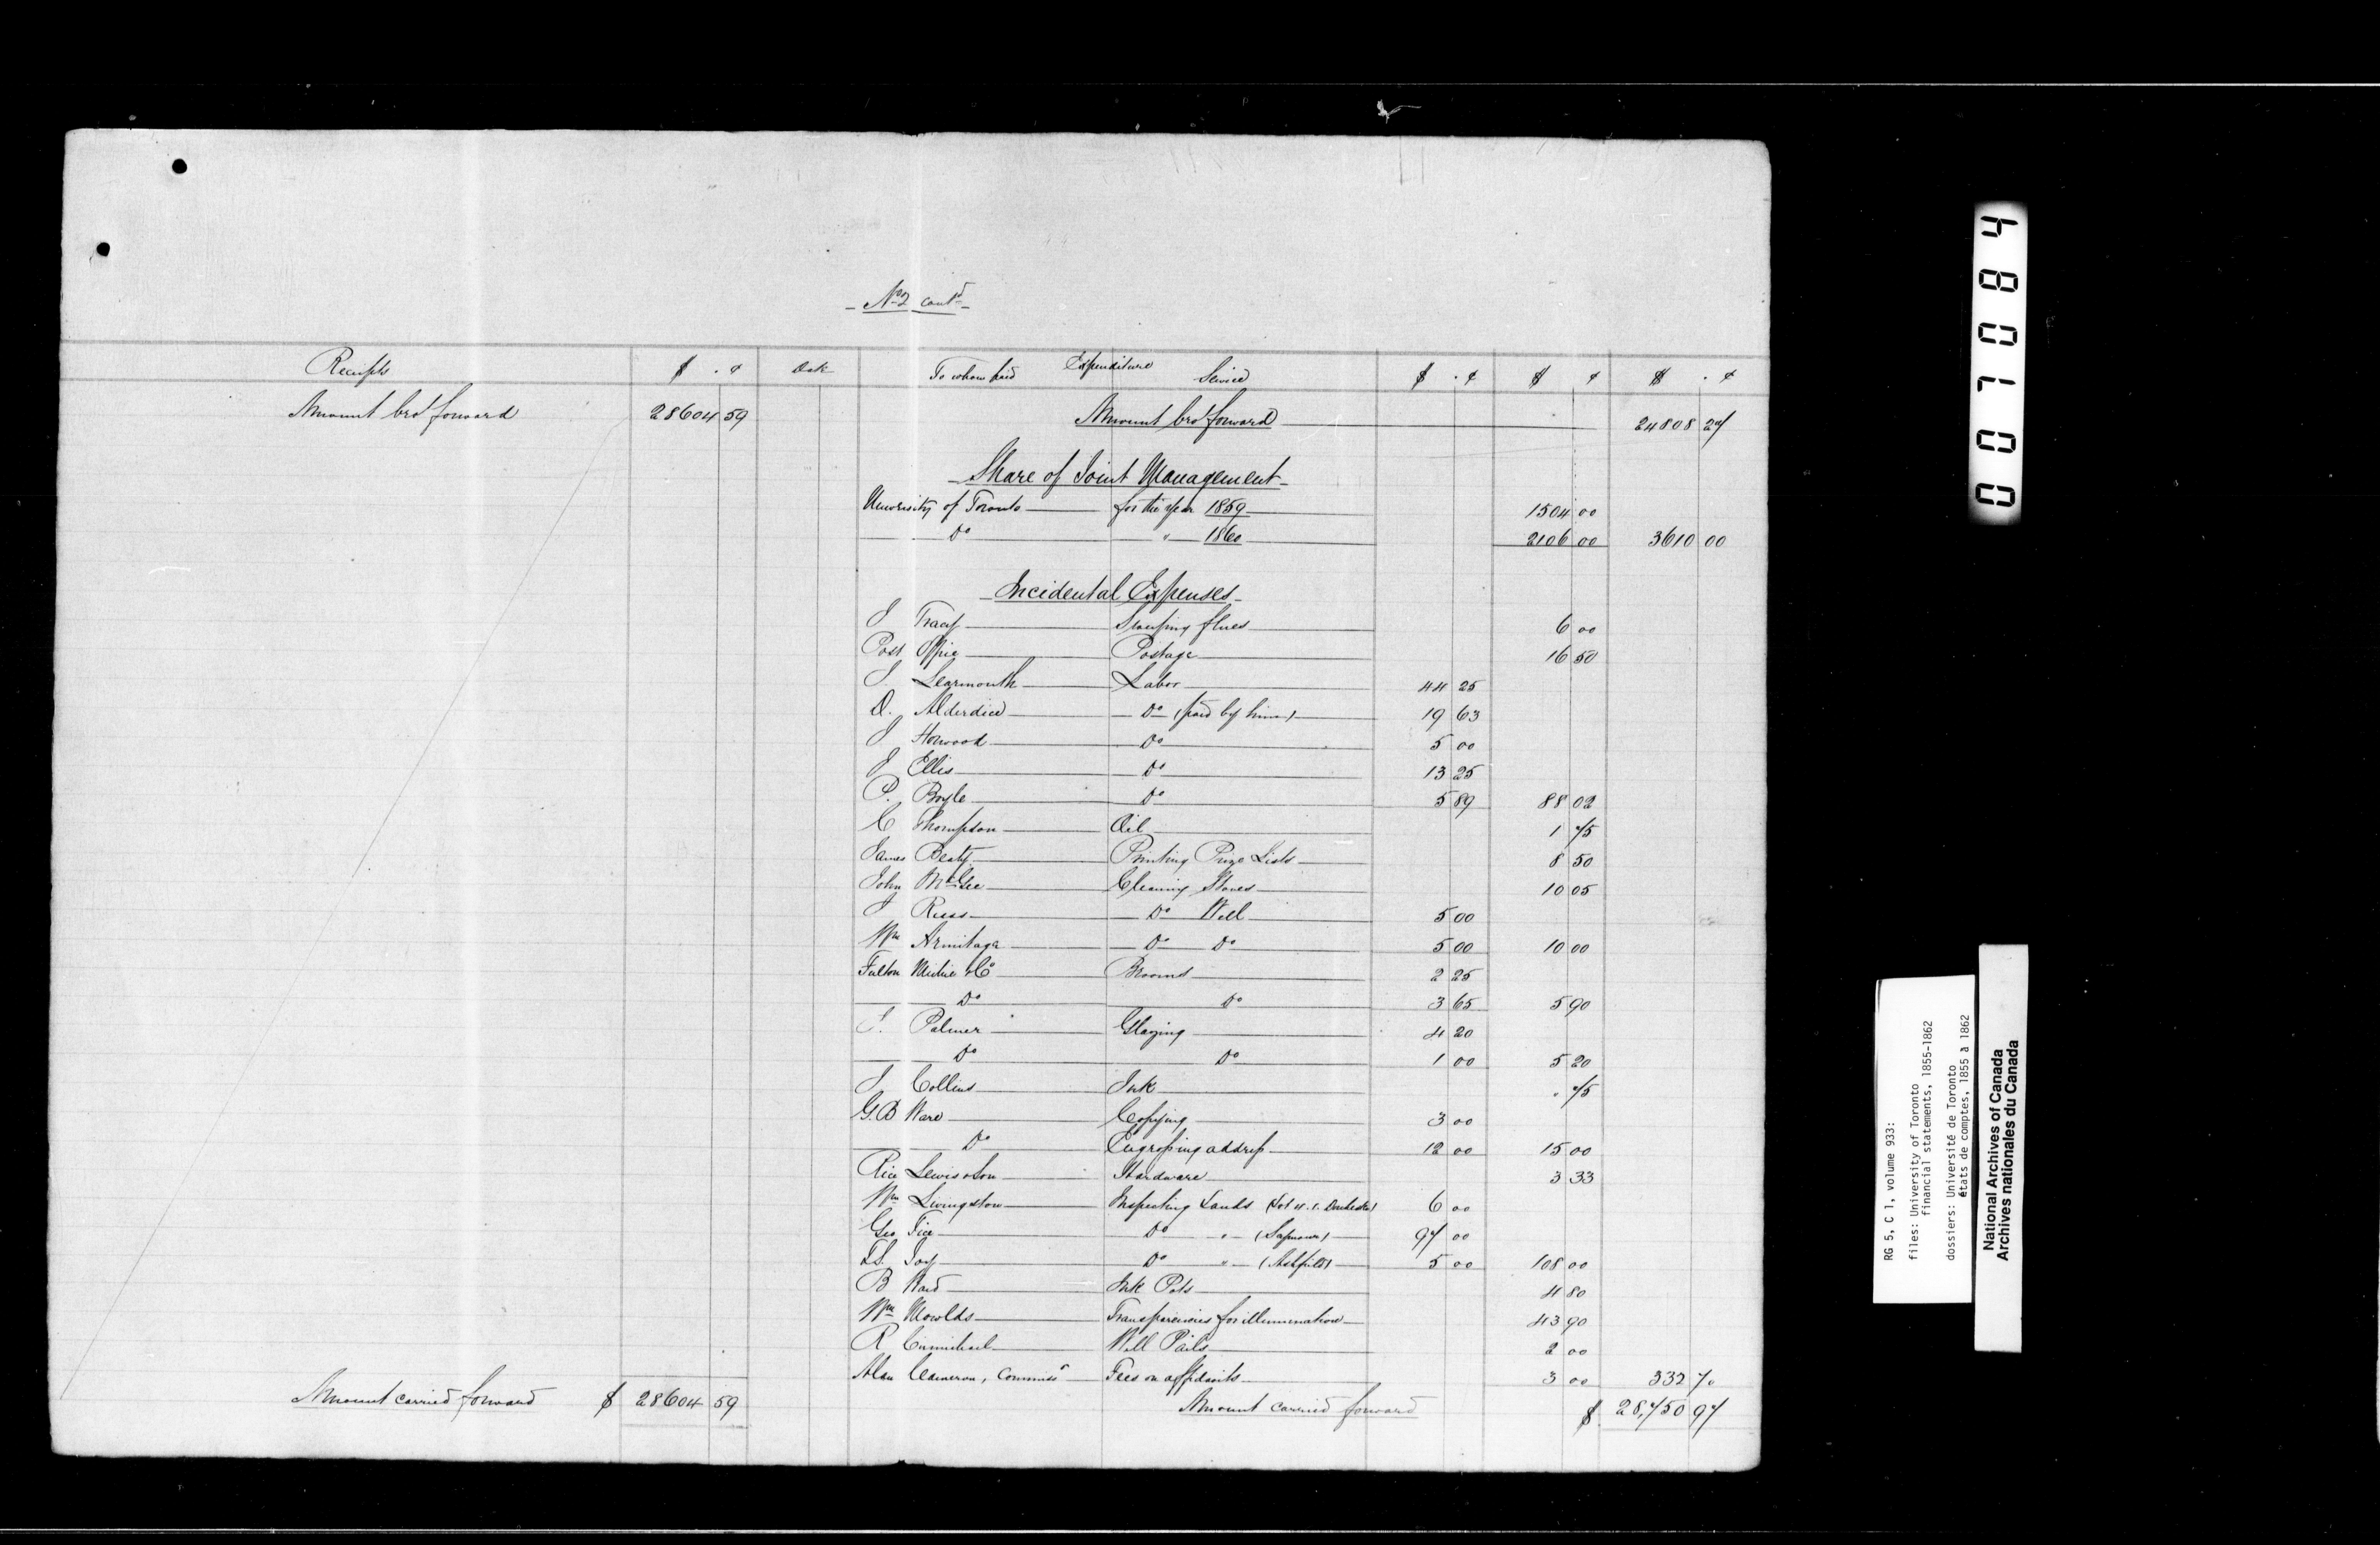 - No 2 contd -
Receipts $ . ¢ Date To whom paid Expenditure Service $ . ¢ $ ¢ $ . ¢
Amount brot forward 28604 59 Amount brot forward 24808 27
- Share of Joint Management -
University of Toronto for the year 1859 1504 00
Do " 1860 2106 00 3610 00
- Incidental Expenses -
J Tracy Sweeping flues 6 00
Post Office Postage 16 50
J. Learmouth Labor 44 25
D. Alderdice Do (paid by him) 19 63
J Horwood Do 5 00
J Ellis Do 13 25
P. Boyle Do 5 89 88 02
C Thompson Oil 1 75
James Beaty Printing Prize Lists 8 50
John McGee Cleaning Stoves 10 05
J Do Well 5 00
Wm Armitage Do Do 5 00 10 00
Fulton Michie & Co Brooms 2 25
Do Do 3 65 5 90
J. Palmer Glazing 4 20
Do Do 1 00 5 20
J Collins Ink " 75
G.B Ware Copying 3 00
Do Engrossing address 12 00 15 00
Rice Lewis & Son Hardware 3 33
Wm Livingstone Inspecting Lands (Lot 4. 1. Dorchester) 6 00
Geo Tice Do " 97 00
T.S. Do " (Ashfield) 5 00 108 00
B Ward Ink Pots 4 80
Wm Moulds Transparencies for illumination 43 90
R Carmichael Well Pails 2 00
Alan Cameron, Commissr Fees on affidavits 3 00 332 70
Amount carried forward $ 28604 59 Amount carried forward $ 28,750 97
007084
RG 5, C 1, volume 933:
files: University of Toronto
financial statements, 1855-1862
dossiers: Université de Toronto
états de comptes, 1855 à 1862
National Archives of Canada
Archives nationales du Canada